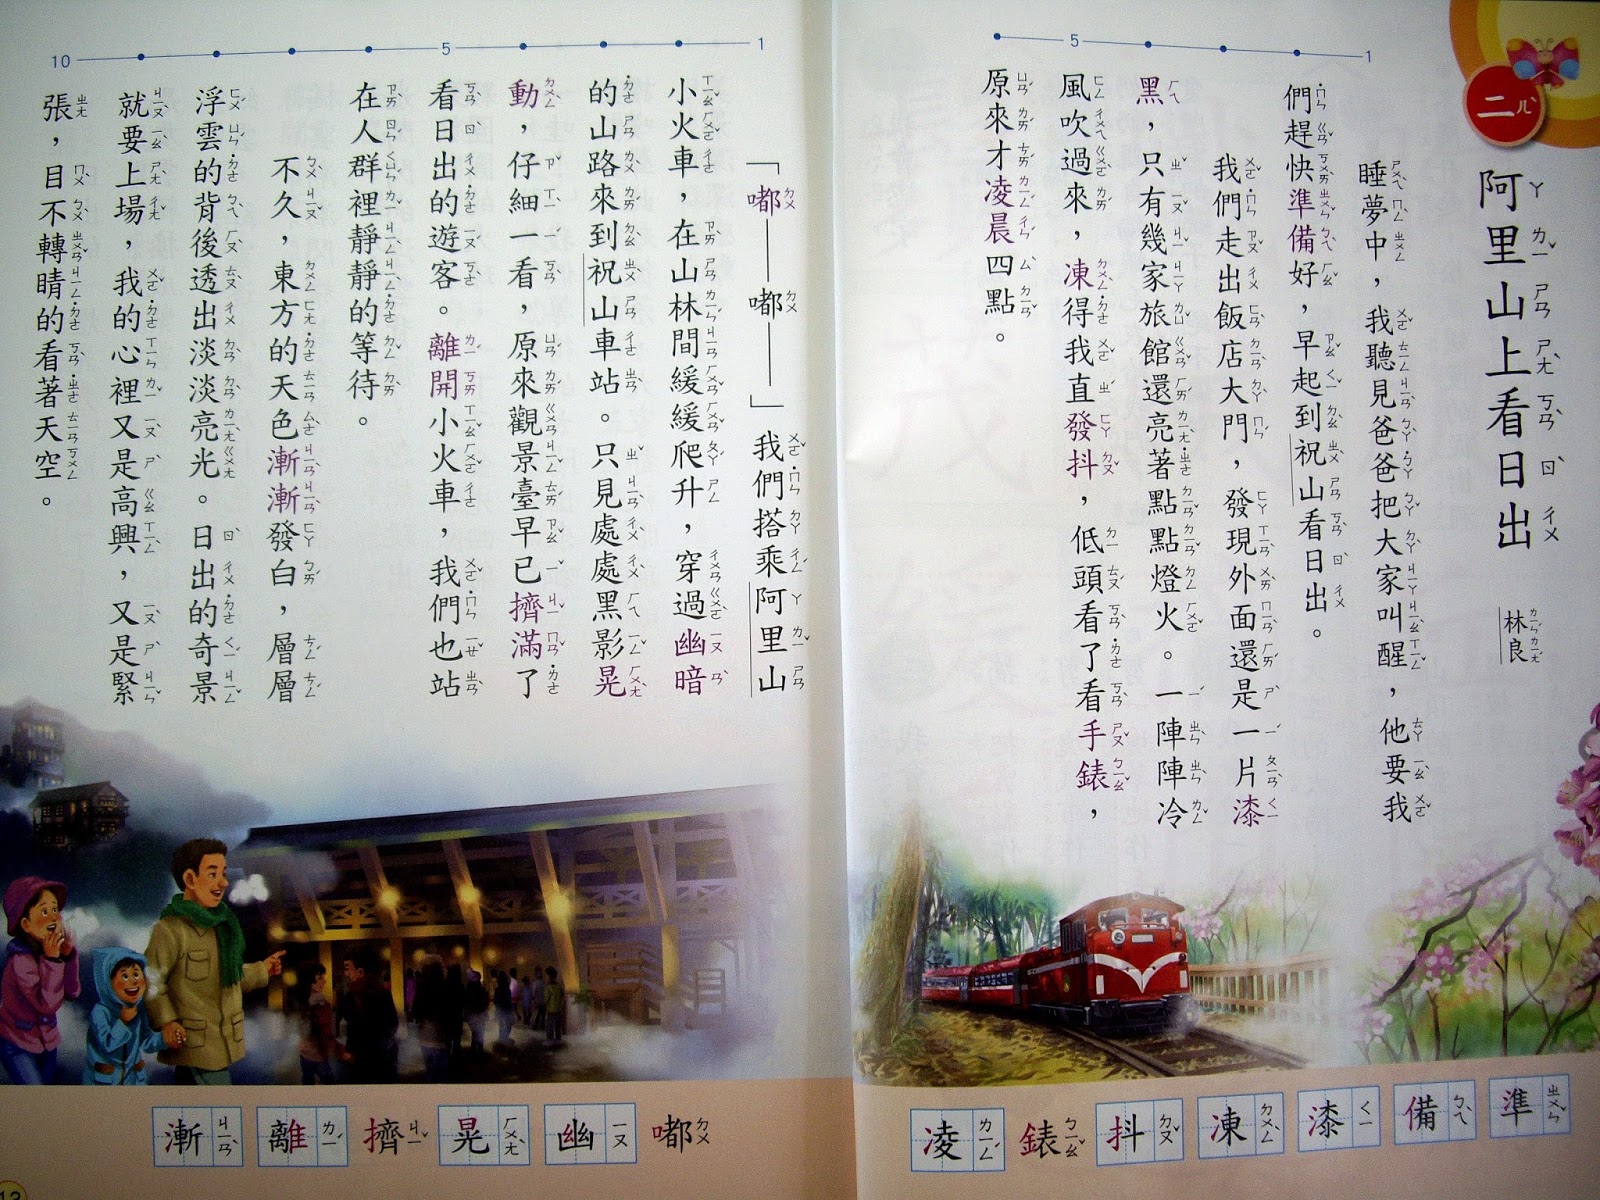 二
阿里山上看日出
林良
睡夢中，我聽見爸爸把大家叫醒，他要我
們趕快準備好，早起到祝山看日出。
我們走出飯店大門，發現外面還是一片漆
黑，只有幾家旅館還亮著點點燈火。一陣陣冷
風吹過來，凍得我直發抖，低頭看了看手錶，
原來才凌晨四點。
1 5
準 備 漆 凍 抖 錶 凌
「嘟——嘟——」我們搭乘阿里山
小火車，在山林間緩緩爬升，穿過幽暗
的山路來到祝山車站。只見處處黑影晃
動，仔細一看，原來觀景臺早已擠滿了
看日出的遊客。離開小火車，我們也站
在人群裡靜靜的等待。
不久，東方的天色漸漸發白，層層
浮雲的背後透出淡淡亮光。日出的奇景
就要上場，我的心裡又是高興，又是緊
張，目不轉睛的看著天空。
1 5 10
嘟 幽 晃 擠 離 漸